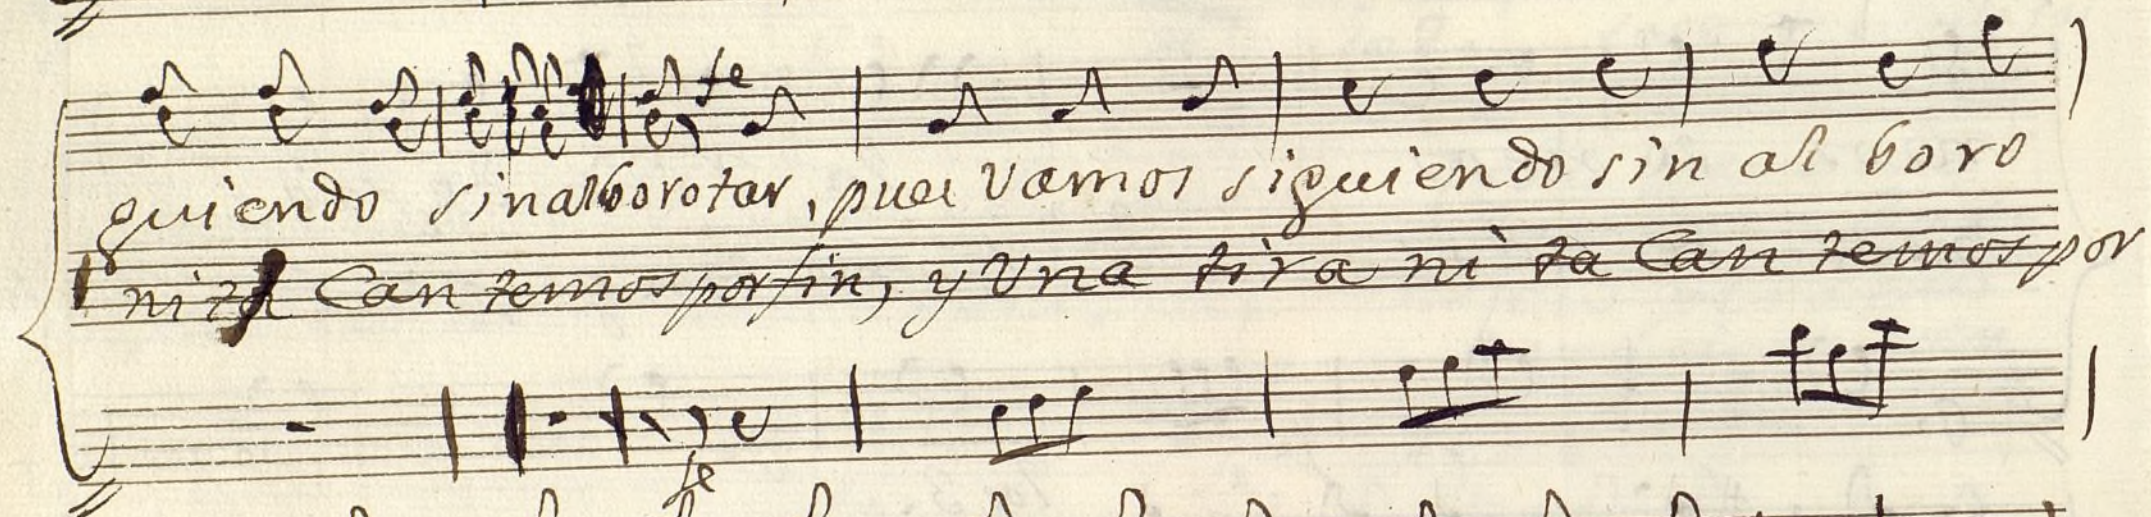 fe
guiendo sinalborotar, pues vamos siguiendo sin al boro
nita Can temos por fin, y Una tira ni ta Can temos por
fe